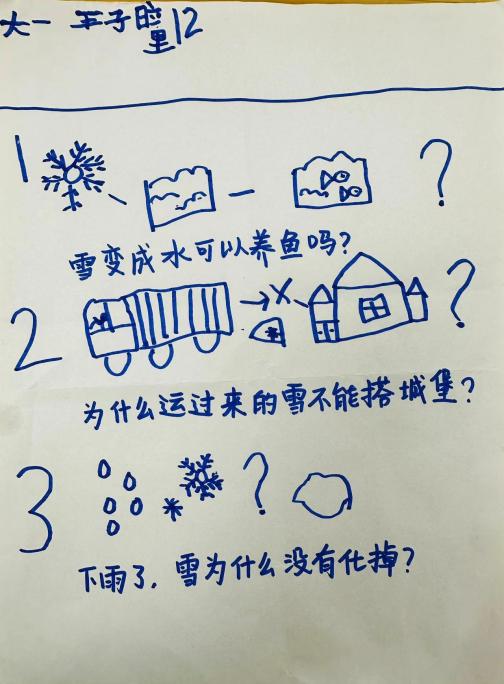 大一 王子瞳12
1 ?
雪变成水可以养鱼吗?
2 ?
为什么运过来的雪不能搭城堡?
3 ?
下雨了,雪为什么没有化掉?